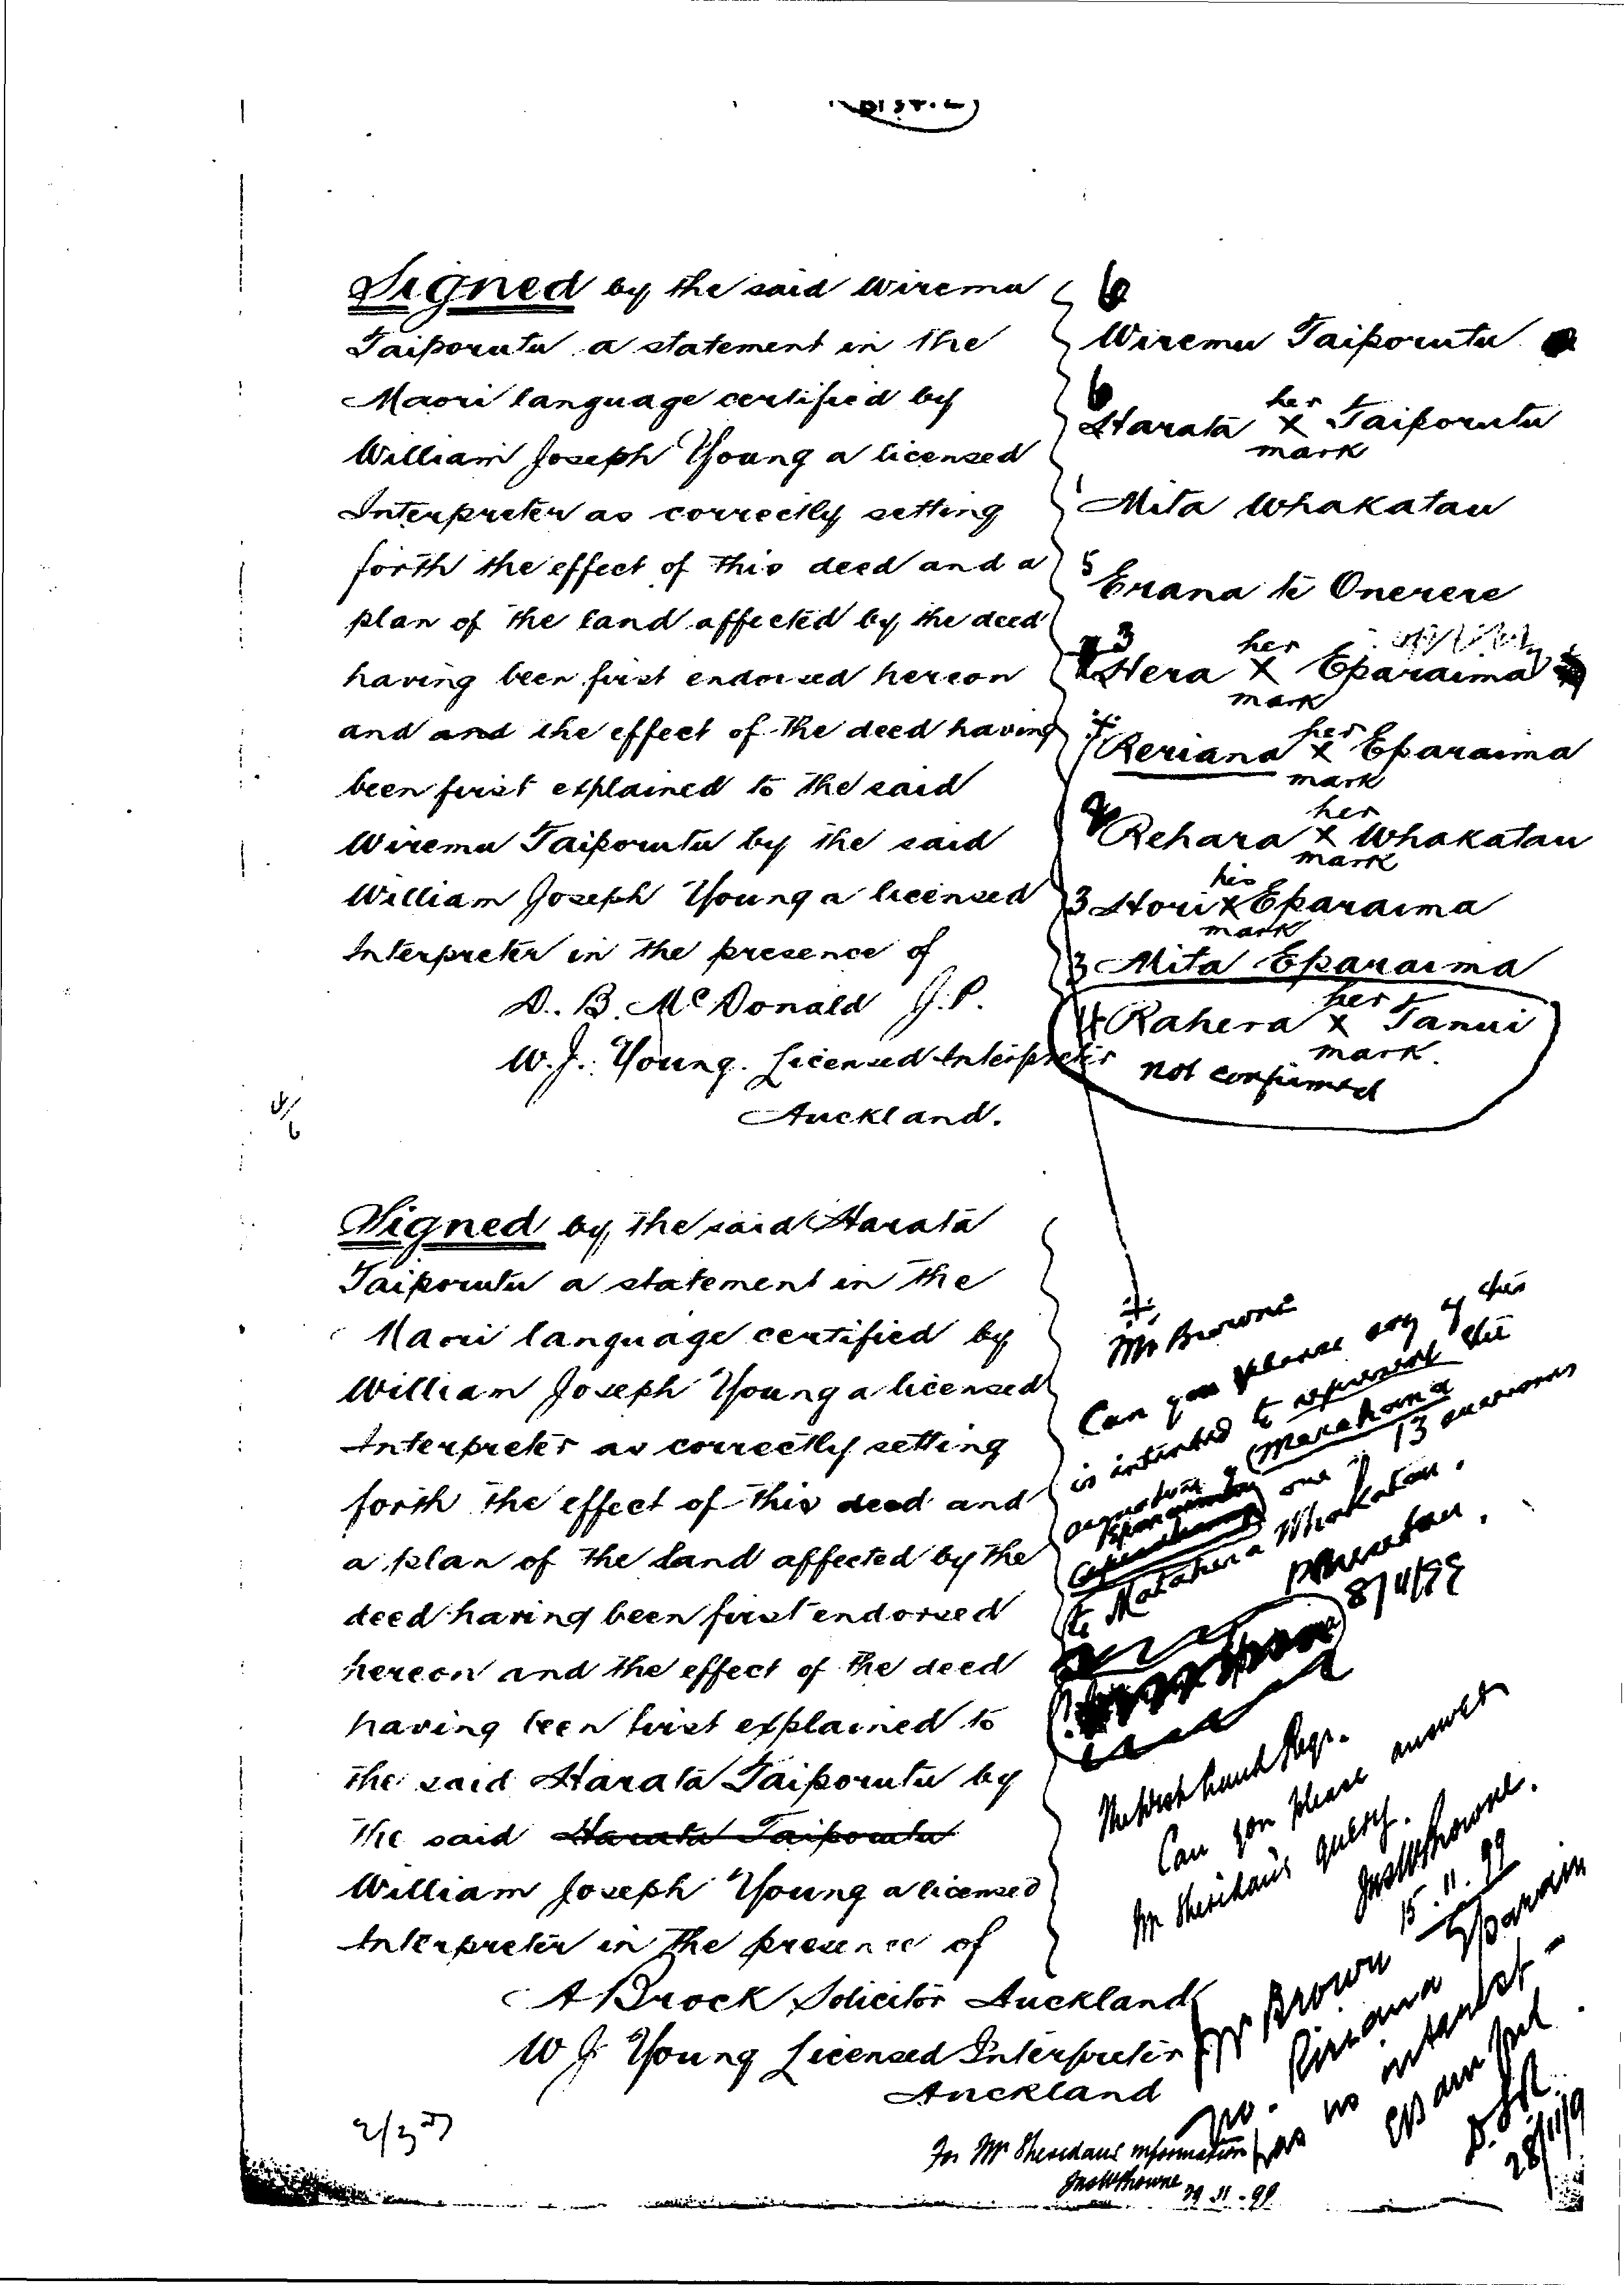 Signed by the said Wiremu
Taiporutu a statement in the
Maori language certified by
William Joseph Young a licensed
Interpreter as correctly setting
forth the effect of this deed and a
plan of the land affected by the deed
having been first endorsed hereon
and and the effect of the deed having
been first explained to the said
Wiremu Taiporutu by the said
William Joseph Young a licensed
Interpreter in the presence of
D. B. McDonald J.P.
W. J. Young. Licensed Interpreter
Auckland.
6
Wiremu Taiporutu
6
her
Harata X Taiporutu
mark
1 Mita Whakatau
5 Erana te Onerere
3
her
Hera X Eparaima
mark
her
Reriana X Eparaima
mark
her
Rehara X Whakatau
mark
his
3 Hori X Eparaima
mark
3 Mita Eparaima
her
4 Rahera X Tanui
mark.
not confirmed
Signed by the said Harata
Taiporutu a statement in the
Maori language certified by
William Joseph Young a licensed
Interpreter as correctly setting
forth the effect of this deed and
a plan of the land affected by the
deed having been first endorsed
hereon and the effect of the deed
having been first explained to
the said Harata Taiporutu by
the said Harata Taiporutu
William Joseph Young a licensed
Interpreter in the presence of
A Brock Solicitor Auckland
W J Young Licensed Interpreter
Auckland
Mr Browne
Can you please say if this
is intended to represent the
signature of (Merehana
one of 13 successors
to Matahera Whakatau.
8/11/99
Can you please answer
Mr Sheridan's query.
15.11.99
Mr Brown
no. Ririana Eparaim
has no interest
28/11/9
For Mr Sheridans information
29.11.99